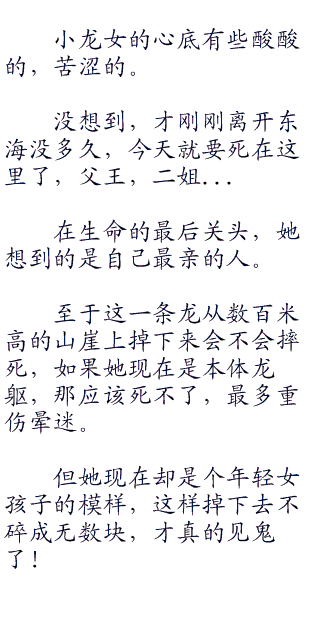 小龙女的心底有些酸酸
的，苦涩的。
没想到，才刚刚离开东
海没多久，今天就要死在这
里了，父王，二姐...
在生命的最后关头，她
想到的是自己最亲的人。
至于这一条龙从数百米
高的山崖上掉下来会不会摔
死，如果她现在是本体龙
躯，那应该死不了，最多重
伤晕迷。
但她现在却是个年轻女
孩子的模样，这样掉下去不
碎成无数块，才真的见鬼
了！